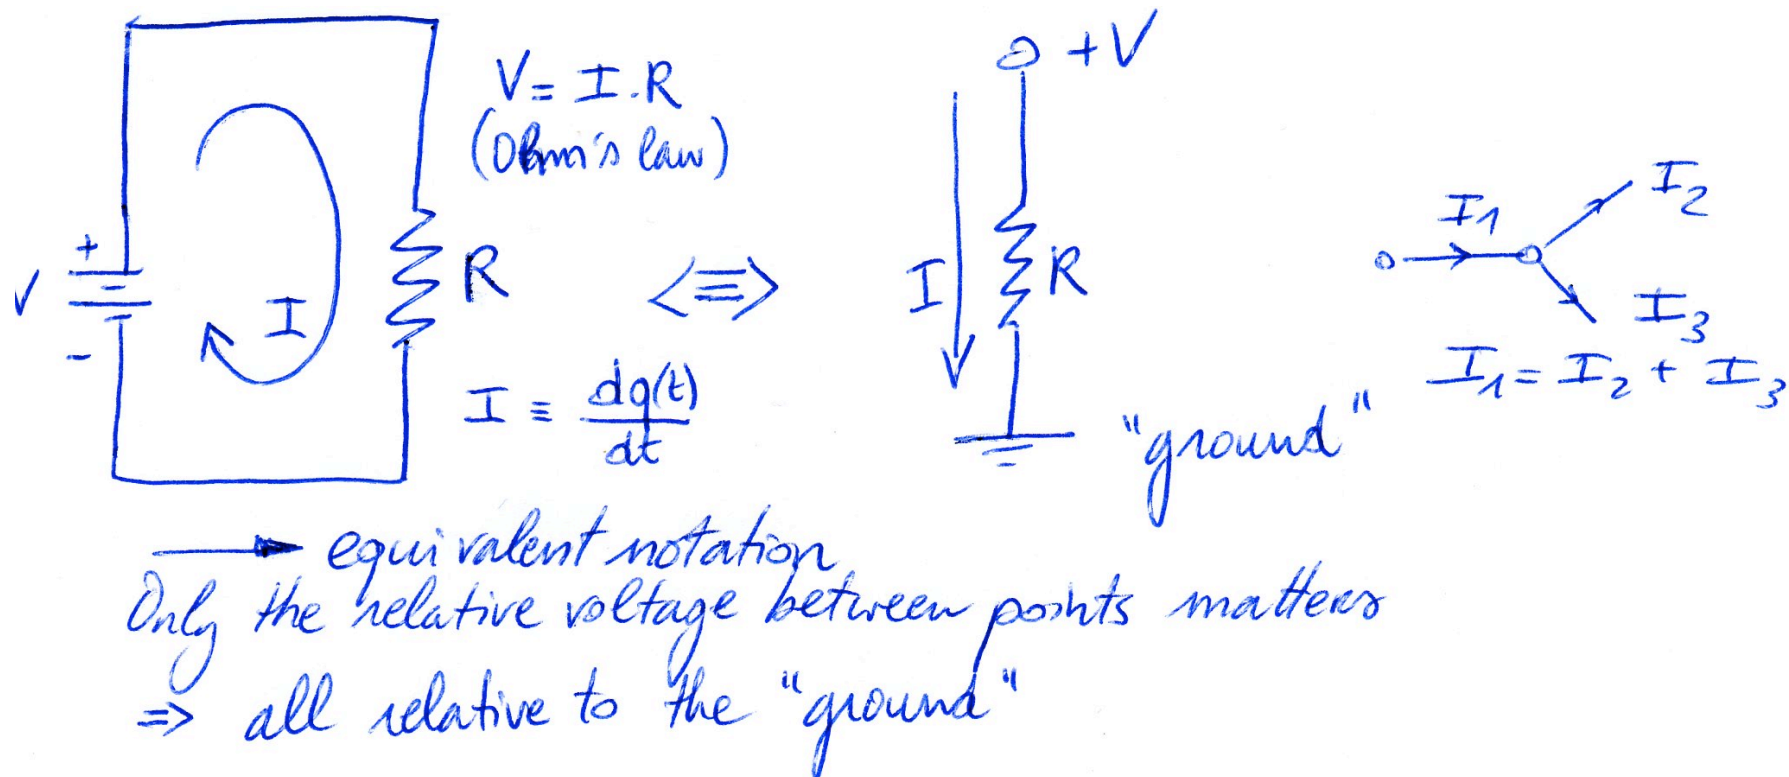 V = I.R
(Ohm's law)
+
V
-
I
R
I ≡ dq(t)/dt
<=>
+V
I
R
"ground"
I1
I2
I3
I1 = I2 + I3
→ equivalent notation
Only the relative voltage between points matters
=> all relative to the "ground"